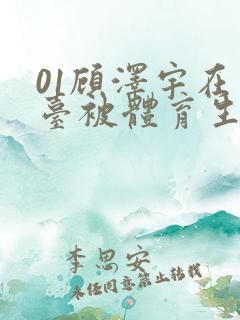 01顾澤宇在
臺被體育生
李思安
未经同意禁止转载